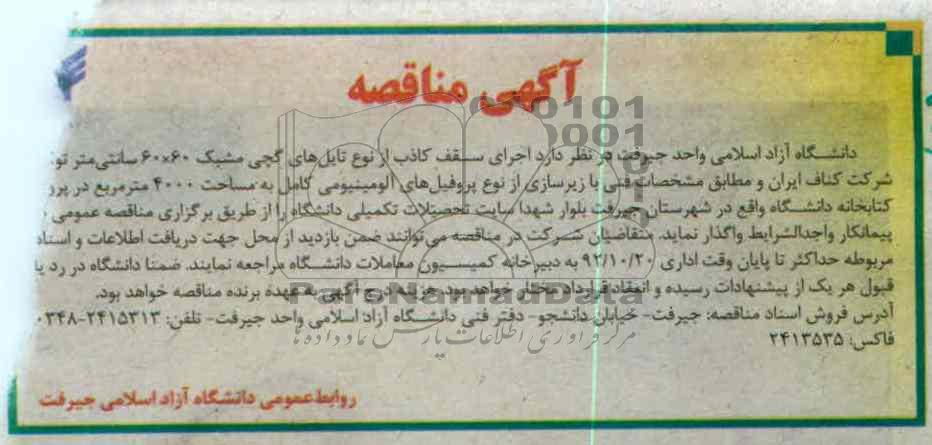 آگهی مناقصه
دانشگاه آزاد اسلامی واحد جیرفت در نظر دارد اجرای سقف کاذب از نوع تایل‌های گچی مشبک ۶۰×۶۰ سانتی‌متر
شرکت کناف ایران و مطابق مشخصات فنی با زیرسازی از نوع پروفیل‌های آلومینیومی کامل به مساحت ۴۰۰۰ مترمربع در
کتابخانه دانشگاه واقع در شهرستان جیرفت بلوار شهدا سایت تحصیلات تکمیلی دانشگاه را از طریق برگزاری مناقصه عمومی
پیمانکار واجدالشرایط واگذار نماید. متقاضیان شرکت در مناقصه می‌توانند ضمن بازدید از محل جهت دریافت اطلاعات و اسناد
مربوطه حداکثر تا پایان وقت اداری ۹۲/۱۰/۲۰ به دبیرخانه کمیسیون معاملات دانشگاه مراجعه نمایند. ضمنا دانشگاه در رد یا
قبول هر یک از پیشنهادات رسیده و انعقاد قرارداد مختار خواهد بود. هزینه درج آگهی به عهده برنده مناقصه خواهد بود.
آدرس فروش اسناد مناقصه: جیرفت- خیابان دانشجو- دفتر فنی دانشگاه آزاد اسلامی واحد جیرفت- تلفن: ۲۴۱۵۳۱۳-۰۳۴۸
فاکس: ۲۴۱۳۵۳۵
روابط‌عمومی دانشگاه آزاد اسلامی جیرفت
ParsNamadData
مرکز فرآوری اطلاعات پارس نماد داده ها